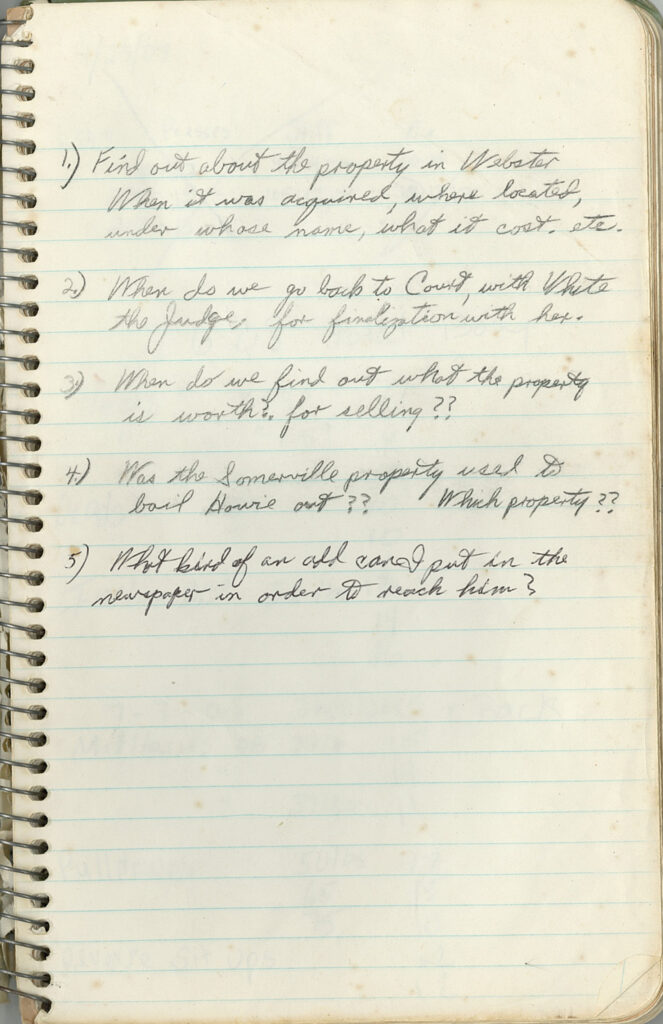 1.) Find out about the property in Webster
When it was acquired, where located,
under whose name, what it cost. etc.
2.) When do we go back to Court, with White
the Judge, for finalization with her.
3.) When do we find out what the property
is worth?. for selling??
4.) Was the Somerville property used to
bail Howie out?? Which property??
5) What kind of an add can I put in the
newspaper in order to reach him?